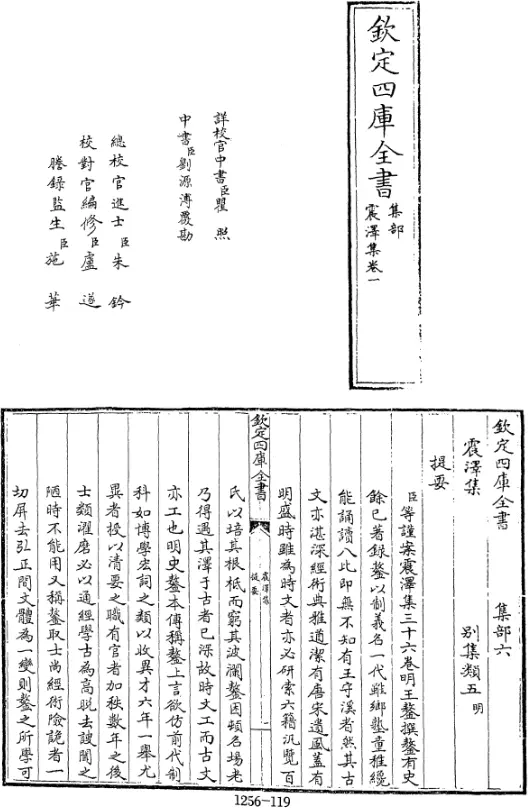 欽定四庫全書
集部
震澤集卷一
詳校官中書臣瞿照
中書臣劉源溥覆勘
總校官進士臣朱鈐
校對官編修臣盧遂
謄錄監生臣施華
欽定四庫全書 集部六
震澤集 别集類五明
提要
臣等謹案震澤集三十六卷明王鏊撰鏊有史
餘已著錄鏊以制義名一代雖鄉塾童稚纔
能誦讀八比即無不知有王守溪者然其古
文亦湛深經術典雅遒潔有唐宋遺風蓋有
明盛時雖為時文者亦必研索六籍汎覽百
欽定四庫全書
震澤集
提要
一
氏以培其根柢而窮其波瀾鏊困頓名場老
乃得遇其澤于古者已深故時文工而古文
亦工也明史鏊本傳稱鏊上言欲仿前代制
科如博學宏詞之類以收異才六年一舉尤
異者授以清要之職有官者加秩數年之後
士類濯磨必以通經學古為高脱去謏聞之
陋時不能用又稱鏊取士尚經術險詭者一
切屏去弘正間文體為一變則鏊之所學可
1256—119